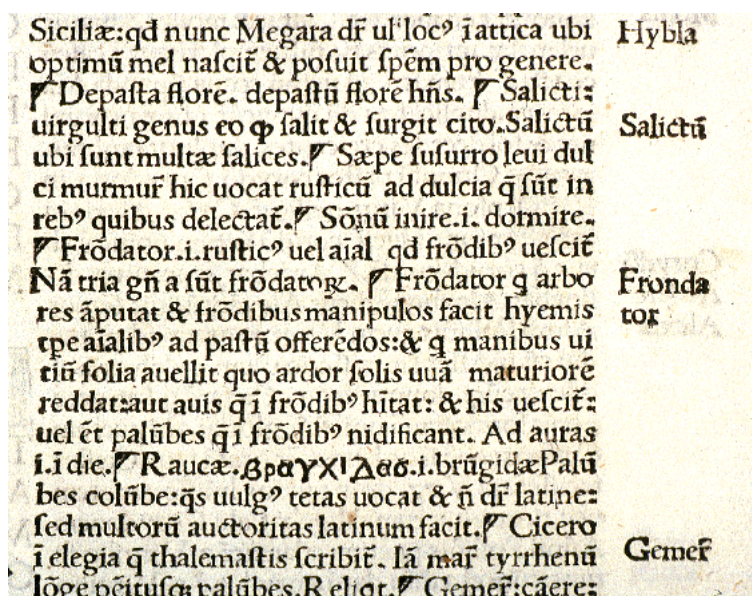 Siciliæ:qđ nunc Megara dr̃ ul'loc⁹ ī attica ubi
Hybla
optimū mel naſcit̃ & poſuit ſpēm pro genere.
¶ Depaſta florē. depaſtū florē hñs. ¶ Salicti:
uirgulti genus eo ꝙ ſalit & ſurgit cito.Salictū
Salictū
ubi ſunt multæ ſalices.¶ Sæpe ſuſurro leui dul
ci murmur̃ hic uocat ruſticū ad dulcia q̄ ſūt in
reb⁹ quibus delectat̃.¶ Sōnū inire.i. dormire.
¶ Frōdator.i.ruſtic⁹ uel aīal qđ frōdib⁹ ueſcit̃
Nā tria gñ a ſūt frōdatoꝝ. ¶ Frōdator q arbo
Fronda
res āputat & frōdibus manipulos facit hyemis
tor
tpe aīalib⁹ ad paſtū offerēdos:& q manibus ui
tiū folia auellit quo ardor ſolis uuā maturiorē
reddat:aut auis q̄ ī frōdib⁹ hītat: & his ueſcit̃:
uel ēt palūbes q̄ ī frōdib⁹ nidificant. Ad auras
i.ī die.¶ Raucæ.βραγχιδασ.i.brūgidæ Palū
bes colūbe:q̄s uulg⁹ tetas uocat & ñ dr̃ latine:
ſed multorū auctoritas latinum facit.¶ Cicero
ī elegia q̄ thalemaſtis ſcribit̃. Iā mar̃ tyrrhenū
Gemer̃
lōge pēituſqꝫ palūbes.Reliqt.¶ Gemer̃:cāere: